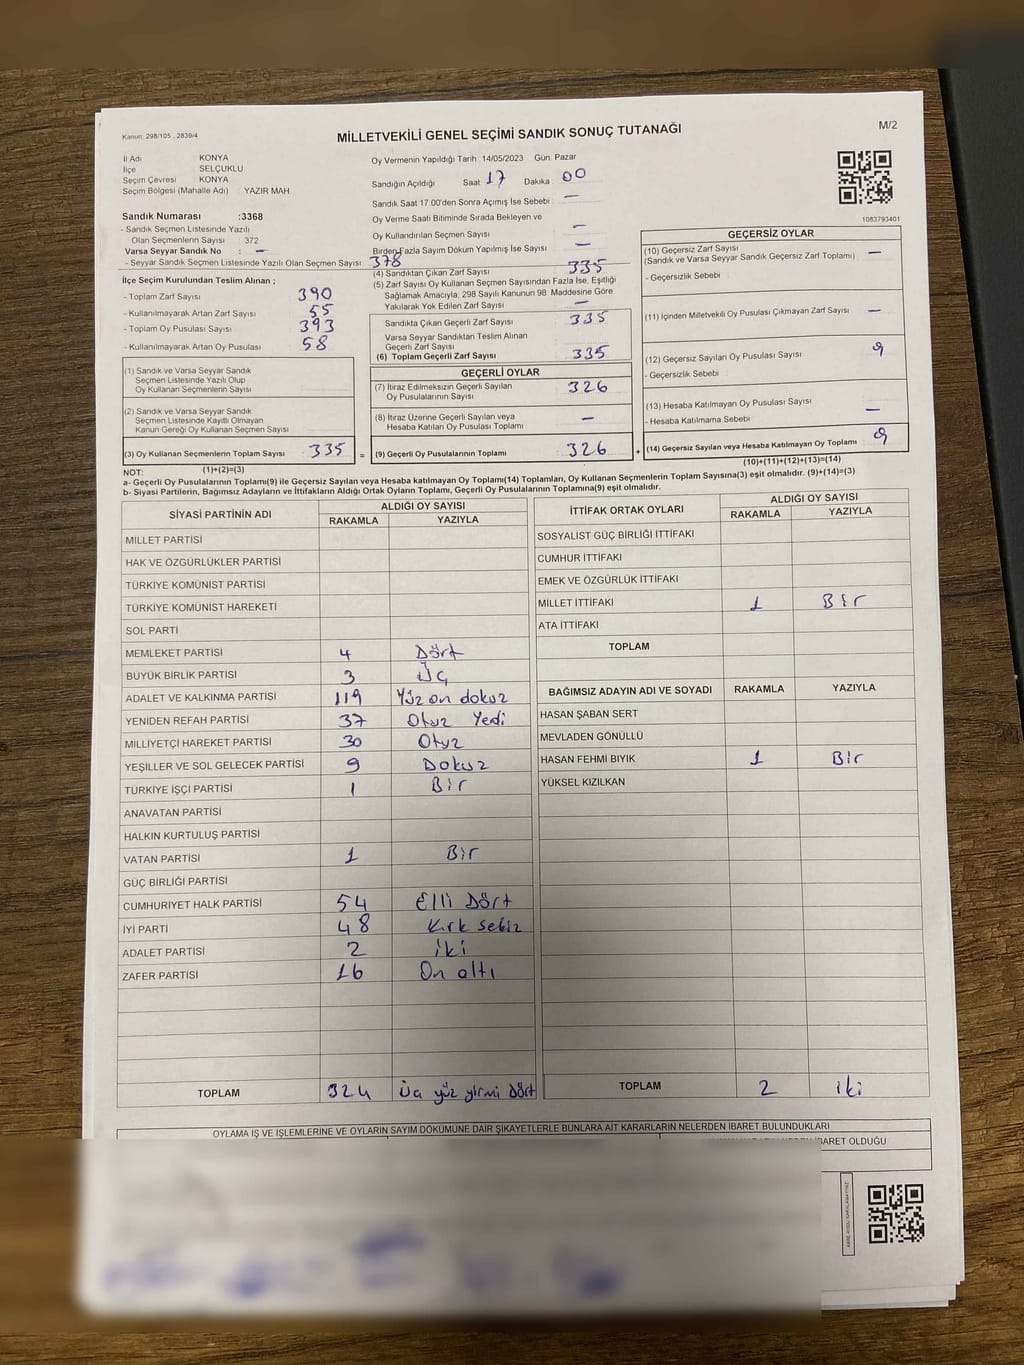 Kanun: 298/105 , 2839/4
MİLLETVEKİLİ GENEL SEÇİMİ SANDIK SONUÇ TUTANAĞI
M/2
İl Adı KONYA
İlçe SELÇUKLU
Seçim Çevresi KONYA
Seçim Bölgesi (Mahalle Adı) YAZIR MAH.
Sandık Numarası :3368
- Sandık Seçmen Listesinde Yazılı
Olan Seçmenlerin Sayısı : 372
Varsa Seyyar Sandık No : —
- Seyyar Sandık Seçmen Listesinde Yazılı Olan Seçmen Sayısı 378
Oy Vermenin Yapıldığı Tarih :14/05/2023 Gün: Pazar
Sandığın Açıldığı Saat 17 Dakika 00
Sandık Saat 17:00'den Sonra Açımış İse Sebebi : —
Oy Verme Saati Bitiminde Sırada Bekleyen ve
Oy Kullandırılan Seçmen Sayısı —
Birden Fazla Sayım Döküm Yapılmış İse Sayısı —
1083793401
İlçe Seçim Kurulundan Teslim Alınan ;
- Toplam Zarf Sayısı 390
- Kullanılmayarak Artan Zarf Sayısı 55
- Toplam Oy Pusulası Sayısı 393
- Kullanılmayarak Artan Oy Pusulası 58
(1) Sandık ve Varsa Seyyar Sandık
Seçmen Listesinde Yazılı Olup
Oy Kullanan Seçmenlerin Sayısı
(2) Sandık ve Varsa Seyyar Sandık
Seçmen Listesinde Kayıtlı Olmayan
Kanun Gereği Oy Kullanan Seçmen Sayısı
(3) Oy Kullanan Seçmenlerin Toplam Sayısı 335 =
(1)+(2)=(3)
(4) Sandıktan Çıkan Zarf Sayısı 335
(5) Zarf Sayısı Oy Kullanan Seçmen Sayısından Fazla İse, Eşitliği
Sağlamak Amacıyla; 298 Sayılı Kanunun 98. Maddesine Göre
Yakılarak Yok Edilen Zarf Sayısı —
Sandıkta Çıkan Geçerli Zarf Sayısı 335
Varsa Seyyar Sandıktan Teslim Alınan
Geçerli Zarf Sayısı
(6) Toplam Geçerli Zarf Sayısı 335
GEÇERLİ OYLAR
(7) İtiraz Edilmeksizin Geçerli Sayılan
Oy Pusulalarının Sayısı 326
(8) İtiraz Üzerine Geçerli Sayılan veya
Hesaba Katılan Oy Pusulası Toplamı —
(9) Geçerli Oy Pusulalarının Toplamı 326 +
GEÇERSİZ OYLAR
(10) Geçersiz Zarf Sayısı
(Sandık ve Varsa Seyyar Sandık Geçersiz Zarf Toplamı) —
- Geçersizlik Sebebi :
(11) İçinden Milletvekili Oy Pusulası Çıkmayan Zarf Sayısı —
(12) Geçersiz Sayılan Oy Pusulası Sayısı 9
- Geçersizlik Sebebi :
(13) Hesaba Katılmayan Oy Pusulası Sayısı
- Hesaba Katılmama Sebebi : —
(14) Geçersiz Sayılan veya Hesaba Katılmayan Oy Toplamı 9
(10)+(11)+(12)+(13)=(14)
NOT:
a- Geçerli Oy Pusulalarının Toplamı(9) ile Geçersiz Sayılan veya Hesaba katılmayan Oy Toplamı(14) Toplamları, Oy Kullanan Seçmenlerin Toplam Sayısına(3) eşit olmalıdır. (9)+(14)=(3)
b- Siyasi Partilerin, Bağımsız Adayların ve İttifakların Aldığı Ortak Oyların Toplamı, Geçerli Oy Pusulalarının Toplamına(9) eşit olmalıdır.
SİYASİ PARTİNİN ADI
ALDIĞI OY SAYISI
RAKAMLA YAZIYLA
MİLLET PARTİSİ
HAK VE ÖZGÜRLÜKLER PARTİSİ
TÜRKİYE KOMÜNİST PARTİSİ
TÜRKİYE KOMÜNİST HAREKETİ
SOL PARTİ
MEMLEKET PARTİSİ 4 Dört
BÜYÜK BİRLİK PARTİSİ 3 Üç
ADALET VE KALKINMA PARTİSİ 119 Yüz on dokuz
YENİDEN REFAH PARTİSİ 37 Otuz Yedi
MİLLİYETÇİ HAREKET PARTİSİ 30 Otuz
YEŞİLLER VE SOL GELECEK PARTİSİ 9 Dokuz
TÜRKİYE İŞÇİ PARTİSİ 1 Bir
ANAVATAN PARTİSİ
HALKIN KURTULUŞ PARTİSİ
VATAN PARTİSİ 1 Bir
GÜÇ BİRLİĞİ PARTİSİ
CUMHURİYET HALK PARTİSİ 54 Elli Dört
İYİ PARTİ 48 Kırk sekiz
ADALET PARTİSİ 2 iki
ZAFER PARTİSİ 16 On altı
TOPLAM 324 Üç yüz yirmi Dört
İTTİFAK ORTAK OYLARI
ALDIĞI OY SAYISI
RAKAMLA YAZIYLA
SOSYALIST GÜÇ BİRLİĞİ İTTİFAKI
CUMHUR İTTİFAKI
EMEK VE ÖZGÜRLÜK İTTİFAKI
MİLLET İTTİFAKI 1 Bir
ATA İTTİFAKI
TOPLAM
BAĞIMSIZ ADAYIN ADI VE SOYADI RAKAMLA YAZIYLA
HASAN ŞABAN SERT
MEVLADEN GÖNÜLLÜ
HASAN FEHMI BIYIK 1 Bir
YÜKSEL KIZILKAN
TOPLAM 2 iki
OYLAMA İŞ VE İŞLEMLERİNE VE OYLARIN SAYIM DÖKÜMÜNE DAİR ŞİKAYETLERLE BUNLARA AİT KARARLARIN NELERDEN İBARET BULUNDUKLARI
OLDUĞU